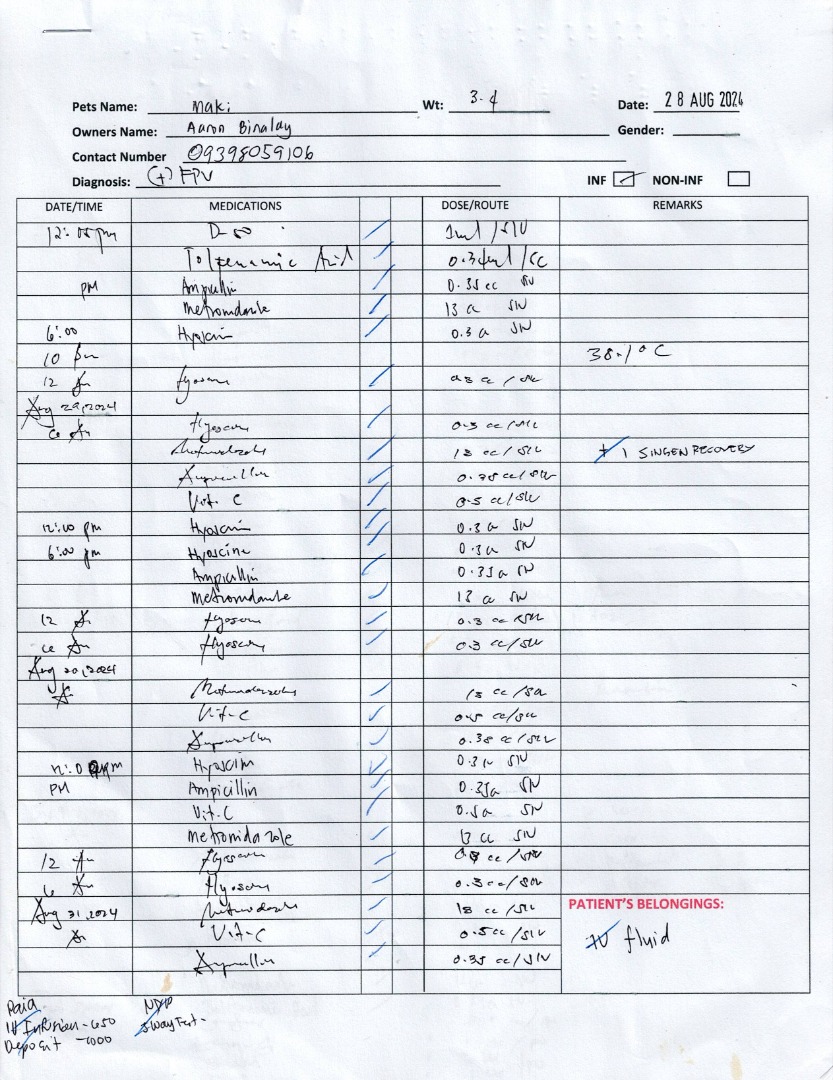 Pets Name: Maki Wt: 3.4 Date: 28 AUG 2024
Owners Name: Aaron Binalay Gender:
Contact Number 09398059106
Diagnosis: (+) FPV INF NON-INF
DATE/TIME MEDICATIONS DOSE/ROUTE REMARKS
D-50 1ml / SIV
Tolfenamic Acid 0.34ml / SC
PM Ampicillin 0.35 cc SIV
Metronidazole 13 cc SIV
6:00 Hyoscin 0.3 cc SIV
10 pm 38.1°C
12 Hyoscine 0.3 cc / SIV
Aug 29, 2024
Hyoscine 0.3 cc / SIV
Metronidazole 13 cc / SIV + 1 SINGEN RECOVERY
Ampicillin 0.35 cc / SIV
Vit. C 0.5 cc / SIV
12:00 pm Hyoscin 0.3 cc SIV
6:00 pm Hyoscine 0.3 cc SIV
Ampicillin 0.35 cc SIV
Metronidazole 13 cc SIV
12 Hyoscine 0.3 cc / SIV
Hyoscine 0.3 cc / SIV
Aug 30, 2024
Metronidazole 13 cc / SIV
Vit-C 0.5 cc / SIV
Ampicillin 0.35 cc / SIV
pm Hyoscin 0.3 cc SIV
PM Ampicillin 0.35 cc SIV
Vit.C 0.5 cc SIV
Metronidazole 13 cc SIV
12 Hyoscine 0.3 cc / SIV
6 Hyoscine 0.3 cc / SIV
Aug 31, 2024 Metronidazole 13 cc / SIV PATIENT'S BELONGINGS:
Vit-C 0.5 cc / SIV IV fluid
Ampicillin 0.35 cc / SIV
Paid
IV Infusion - 650 3 Way Test -
Deposit - 1000